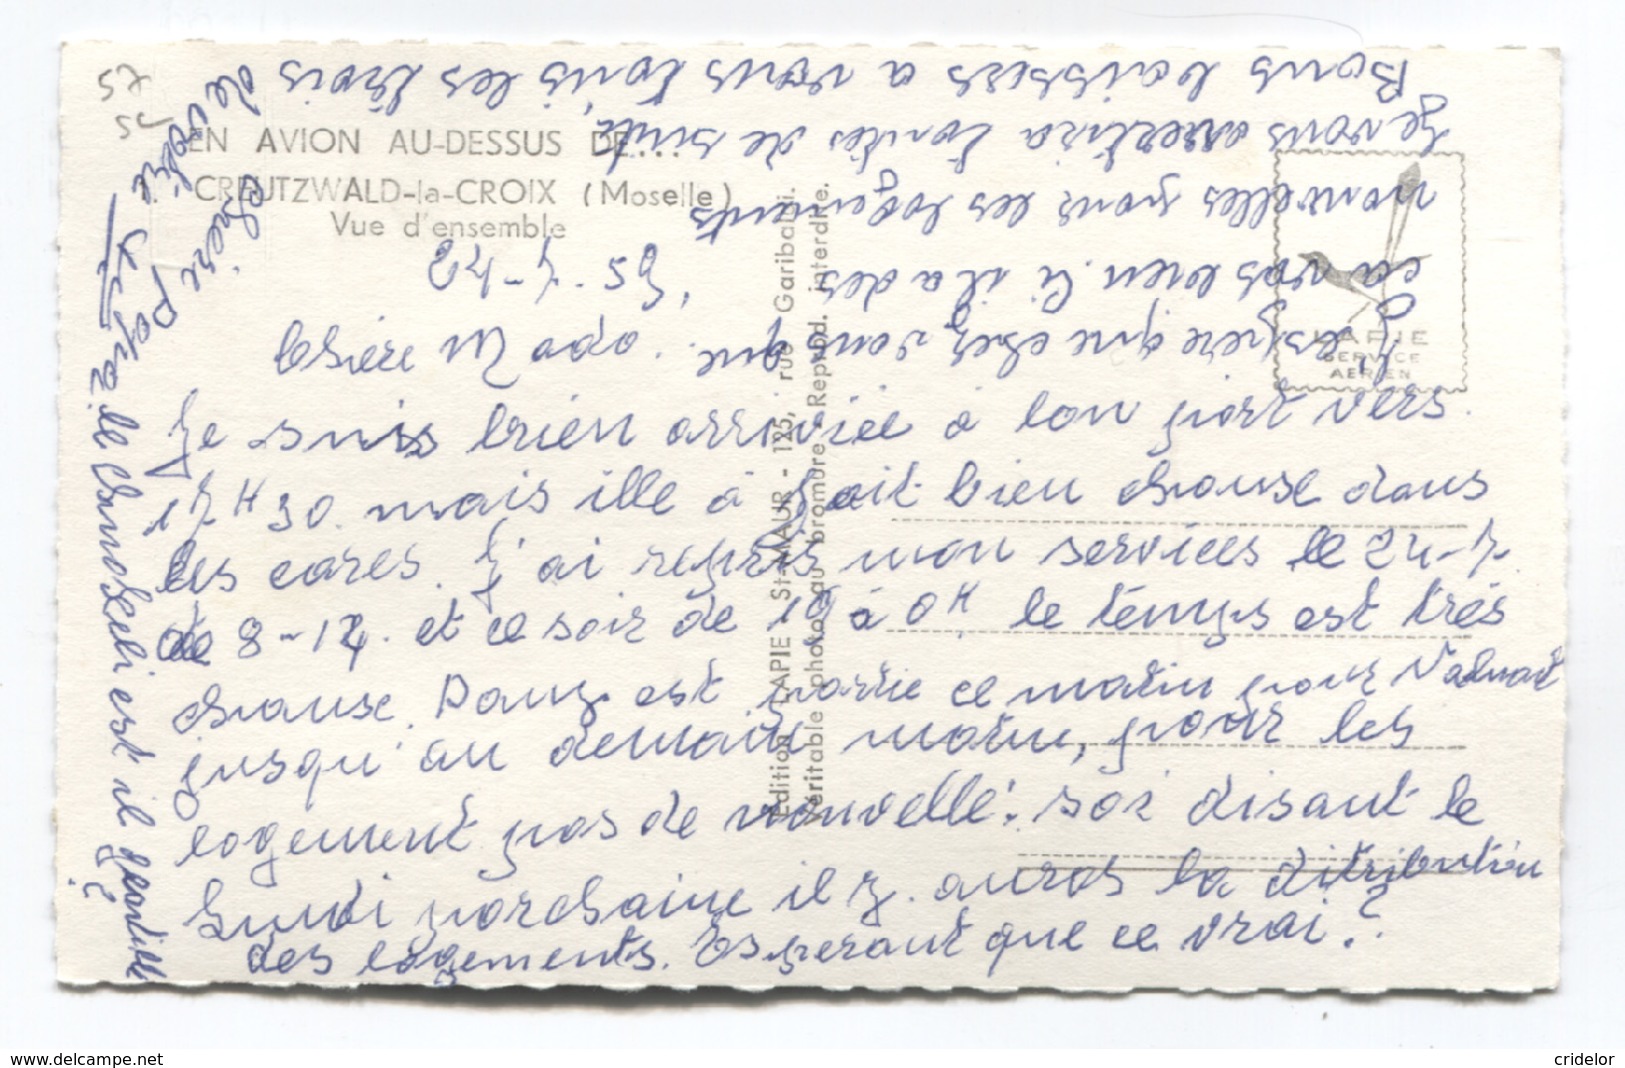 EN AVION AU-DESSUS DE...
CREUTZWALD-la-CROIX (Moselle)
Vue d'ensemble
Edition LAPIE St-MAUR - 125, rue Garibaldi.
Véritable photo au bromure - Reprod. interdite.
LAPIE
SERVICE
AERIEN
24-7-59
Chère Mado.
Je suis bien arrivée à bon port vers
17H30. mais ille à fait bien chause dans
les cares. J'ai repris mon services le 24-7.
de 8-12. et ce soir de 19 à 0H. le temps est très
chause. est partie ce matin pour Valmont
jusqu'au demain matin, pour les
logement pas de nouvelle. soi disant le
Lundi porchaine il y. auras la ditribution
des logements. Esperant que ce vrai.?
J'espère que chez vous que
ca vas bien. si il a des
nouvelles pour les logements
Je vous avertira toutes de suite.
Bons baissers a vous tous les trois
de votre
chère
le est il gentille
?